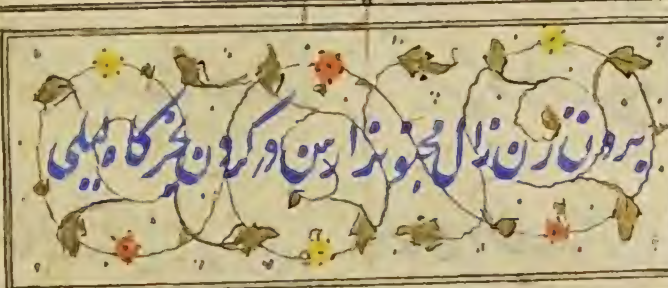 بردن زن زال مجنونرا رسن در گردن بخرگاه لیلی